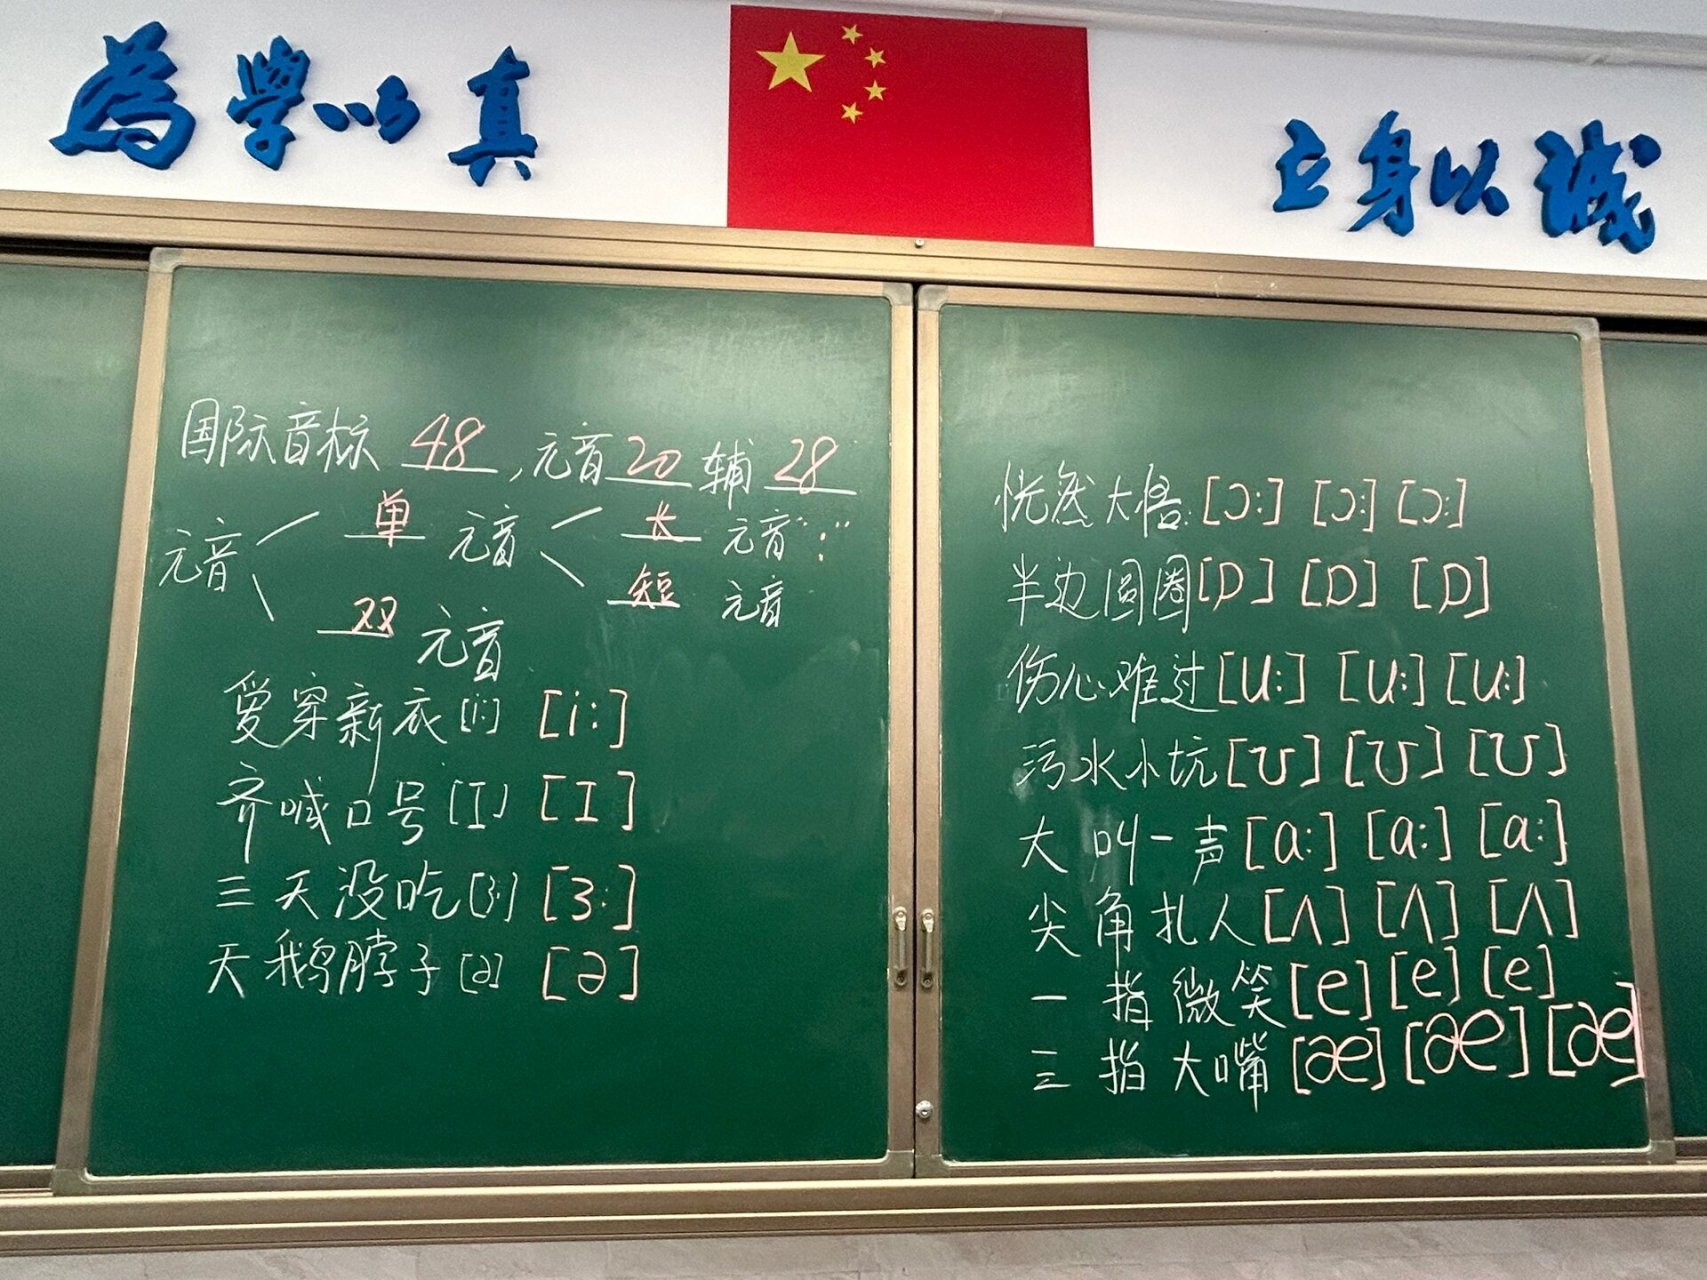 為學以真
立身以诚
国际音标 48 ,元音 20 辅 28
元音 单 元音 长 元音":"
短 元音
双 元音
爱穿新衣[i:] [i:]
齐喊口号[I] [I]
三天没吃[3:] [3:]
天鹅脖子[ə] [ə]
恍然大悟:[ɔ:] [ɔ:] [ɔ:]
半边圆圈[D] [D] [D]
伤心难过[u:] [u:] [u:]
污水小坑[ʊ] [ʊ] [ʊ]
大叫一声[a:] [a:] [a:]
尖角扎人[Λ] [Λ] [Λ]
一指微笑[e] [e] [e]
三指大嘴[æ] [æ] [æ]